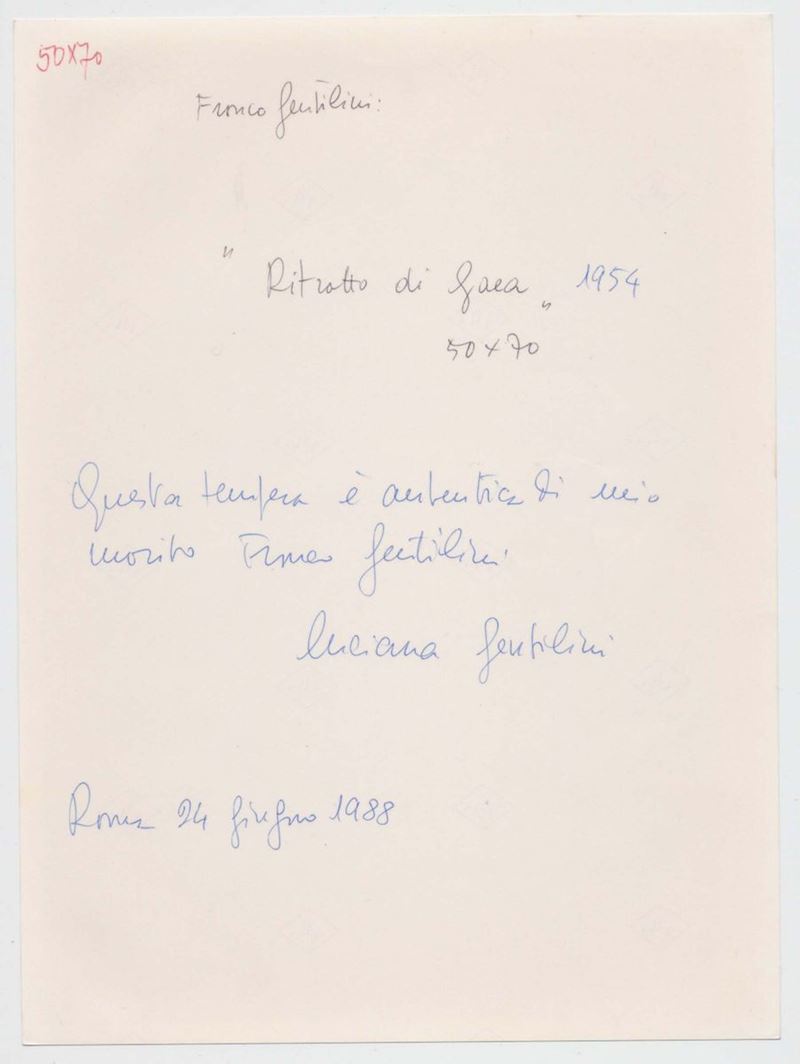 50x70
Franco Gentilini:
" Ritratto di Gaea " 1954
50 x 70
Questa tempera è autentica di mio
marito Franco Gentilini
Luciana Gentilini
Roma 24 giugno 1988